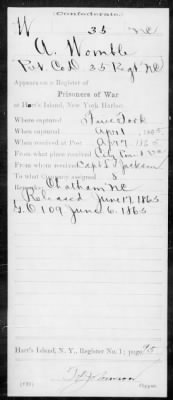 Confederate.
W 35 NC
A. Womble
Pvt Co D 35 Regt NC
Appears on a Register of
Prisoners of War
at Hart's Island, New York Harbor.
Where captured Five Fork
When captured April 1, 1865
When received at Post Apr 7, 1865
From what place received City Point Va
From whom received Capt Jackson
To what Company assigned 8
Remarks: Chatham NC
Released June 17 1865
G.O. 109 June 6. 1865
Hart's Island, N. Y., Register No. 1; page 95
Copyist.